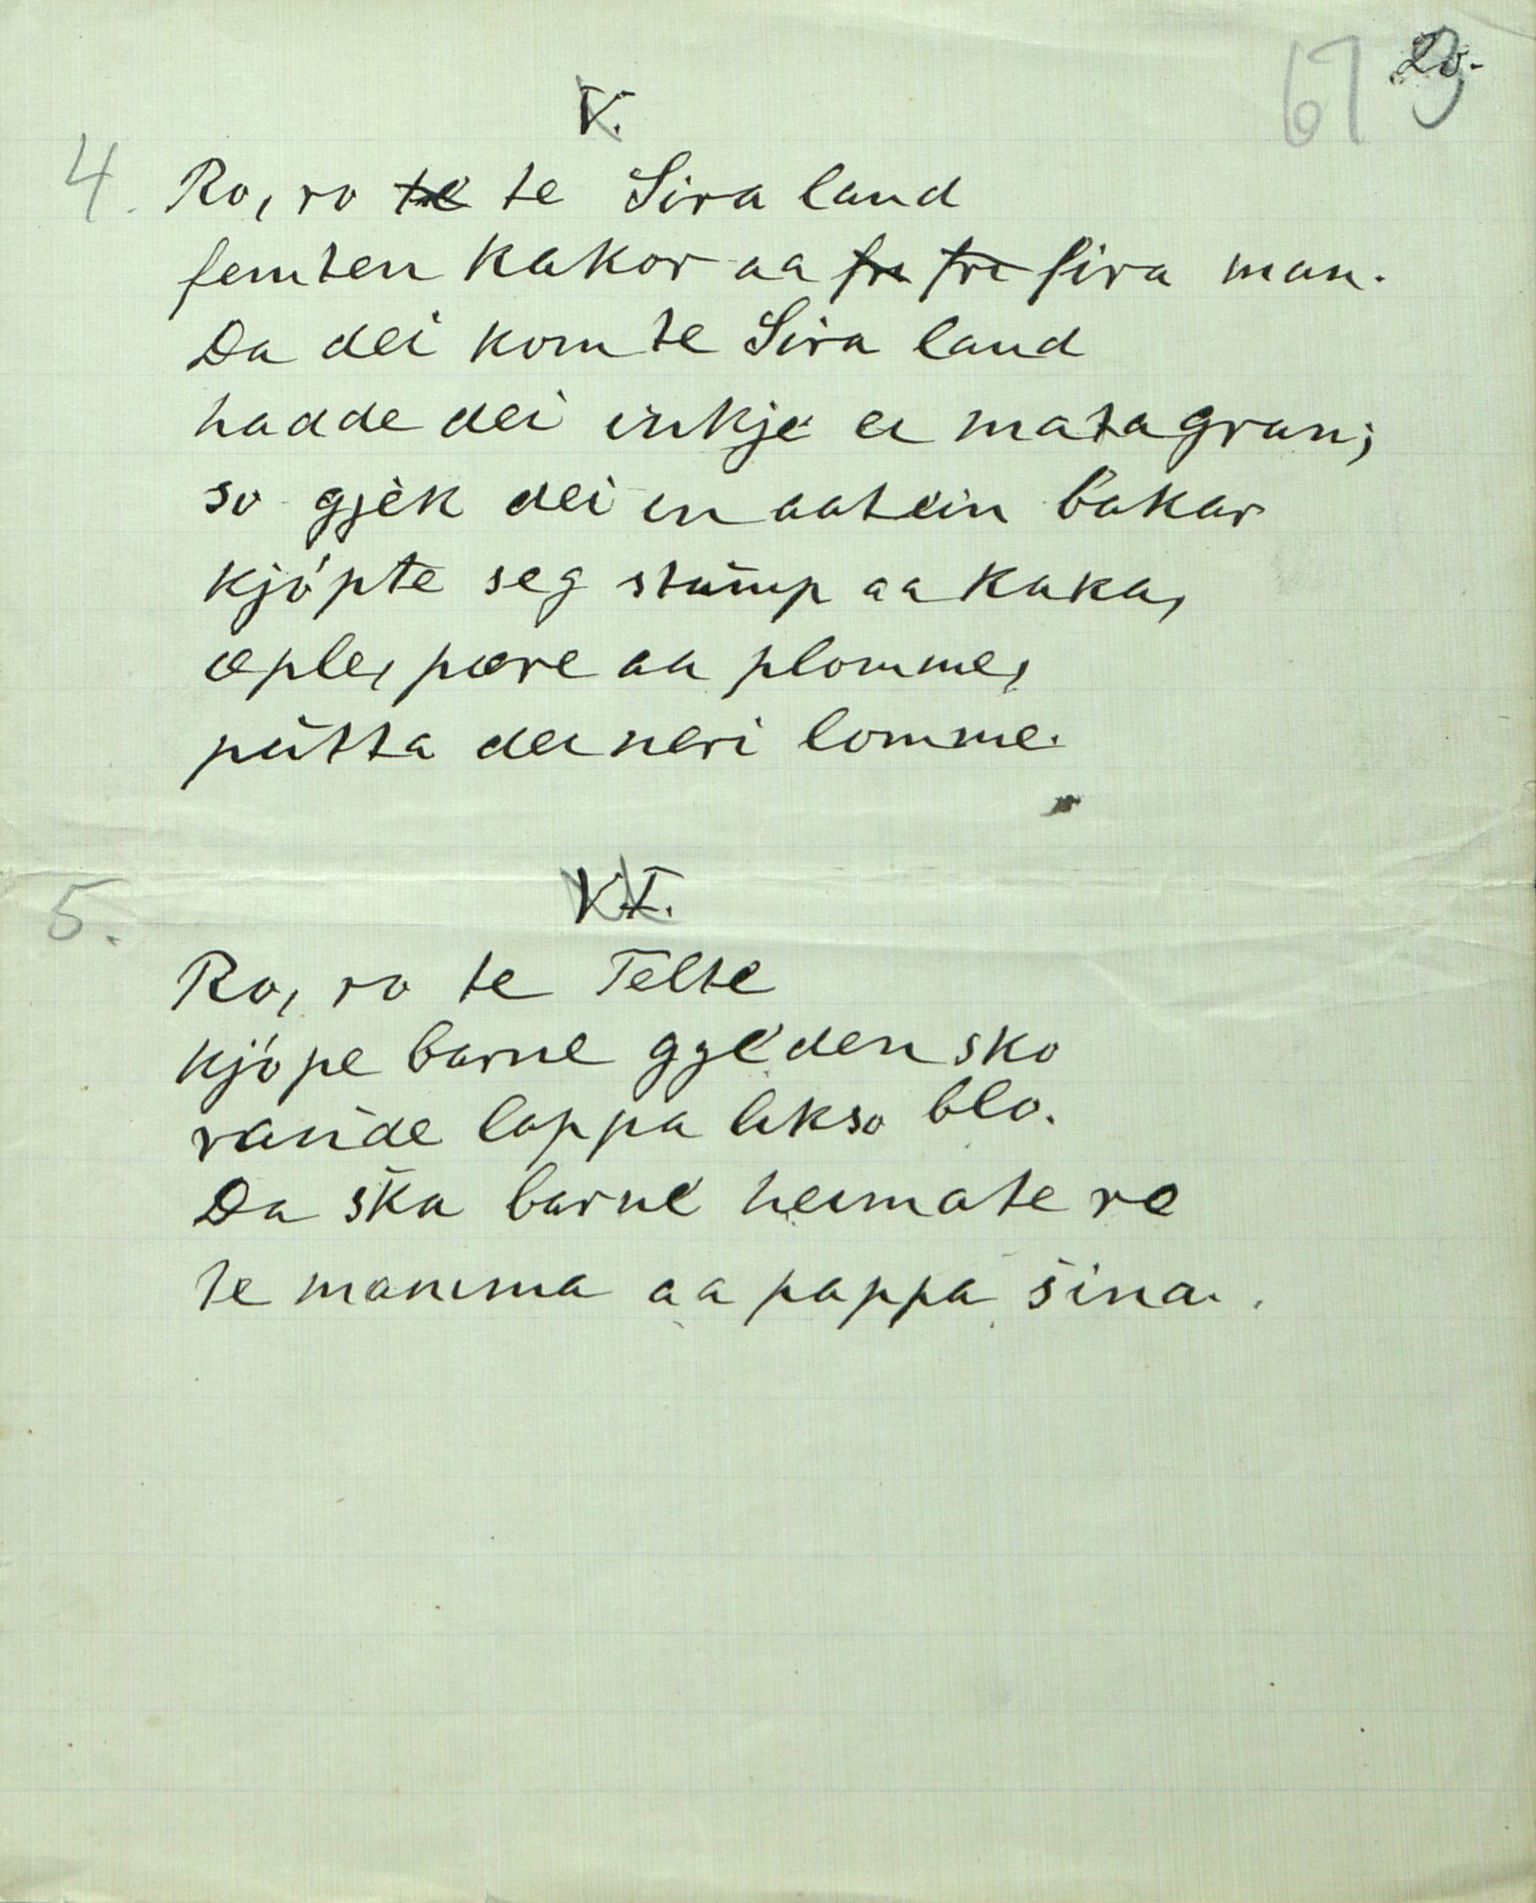 67 20.
V.
4. Ro, ro te te Sira land
femten kakor aa fre fre fira man.
Da dei kom te Sira land
hadde dei inkje ei matagran;
so gjek dei in aat ein bakar
kjöpte seg stump aa kaka,
æple, pære aa plomme,
putta dei neri lomme.
5. VI.
Ro, ro te Telte
kjöpe barne sko
raude lappa
Da ska barne heimate ro
te mamma aa pappa sina.